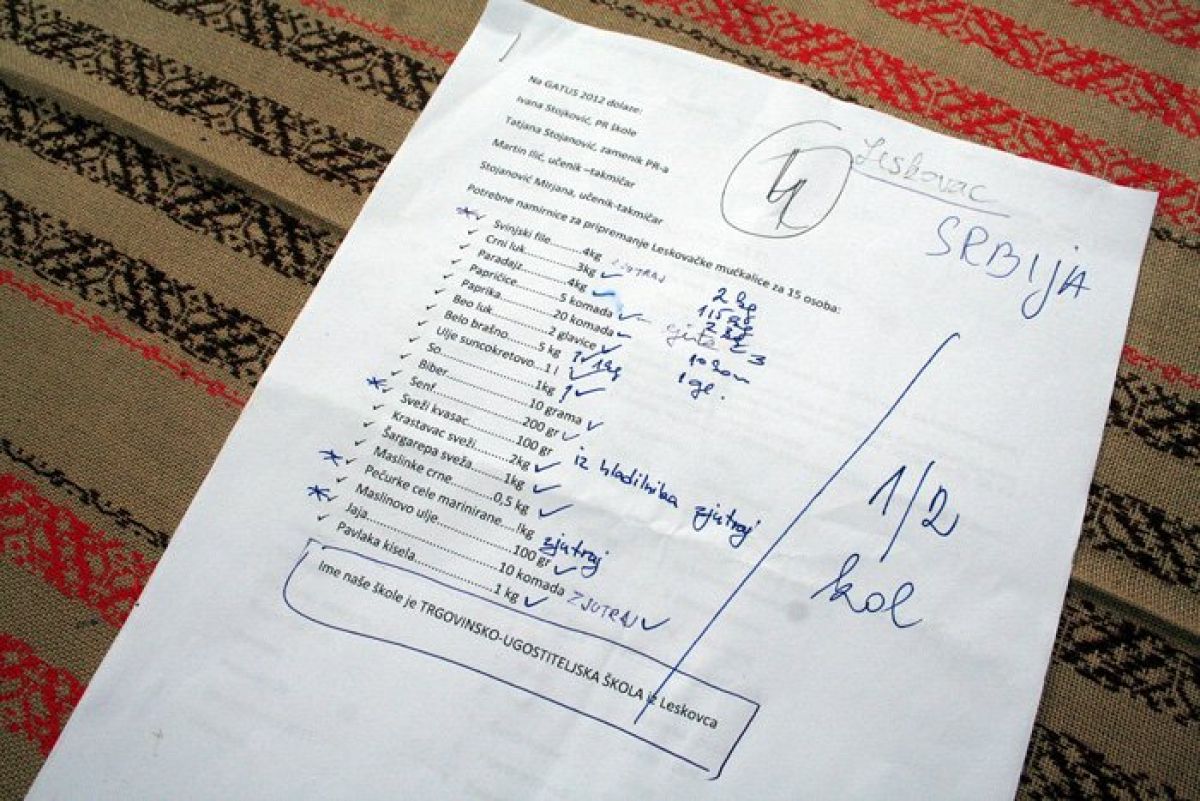 Leskovac
SRBIJA
Na GATUS 2012 dolaze:
Ivana Stojković, PR škole
Tatjana Stojanović, zamenik PR-a
Martin Ilić, učenik –takmičar
Stojanović Mirjana, učenik-takmičar
Potrebne namirnice za pripremanje Leskovačke mućkalice za 15 osoba:
Svinjski file..........4kg ZJUTRAJ 2 kg
Crni luk...............3kg 1,5 kg
Paradajz..............4kg 2 kg
Papričice..............5 komada
Paprika................20 komada 10 kom
Beo luk...............2 glavice 1 gl.
Belo brašno..........5 kg 1 kg
Ulje suncokretovo...1 l
So........................1kg 1
Biber....................10 grama
Senf.....................200 gr
Sveži kvasac..........100 gr iz hladilnika zjutraj
Krastavac sveži......2kg
Šargarepa sveža......1kg
Maslinke crne.........0,5 kg
Pečurke cele marinirane....lkg zjutraj
Maslinovo ulje........100 gr
Jaja......................10 komada ZJUTRAJ
Pavlaka kisela.........1 kg
Ime naše škole je TRGOVINSKO-UGOSTITELJSKA ŠKOLA iz Leskovca
1/2
kol